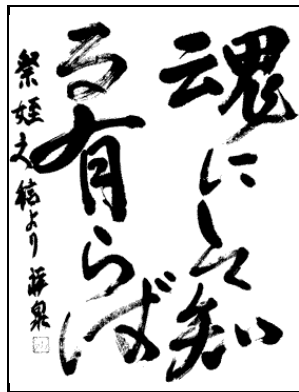 魂にして知
る有らば
祭姪文稿より